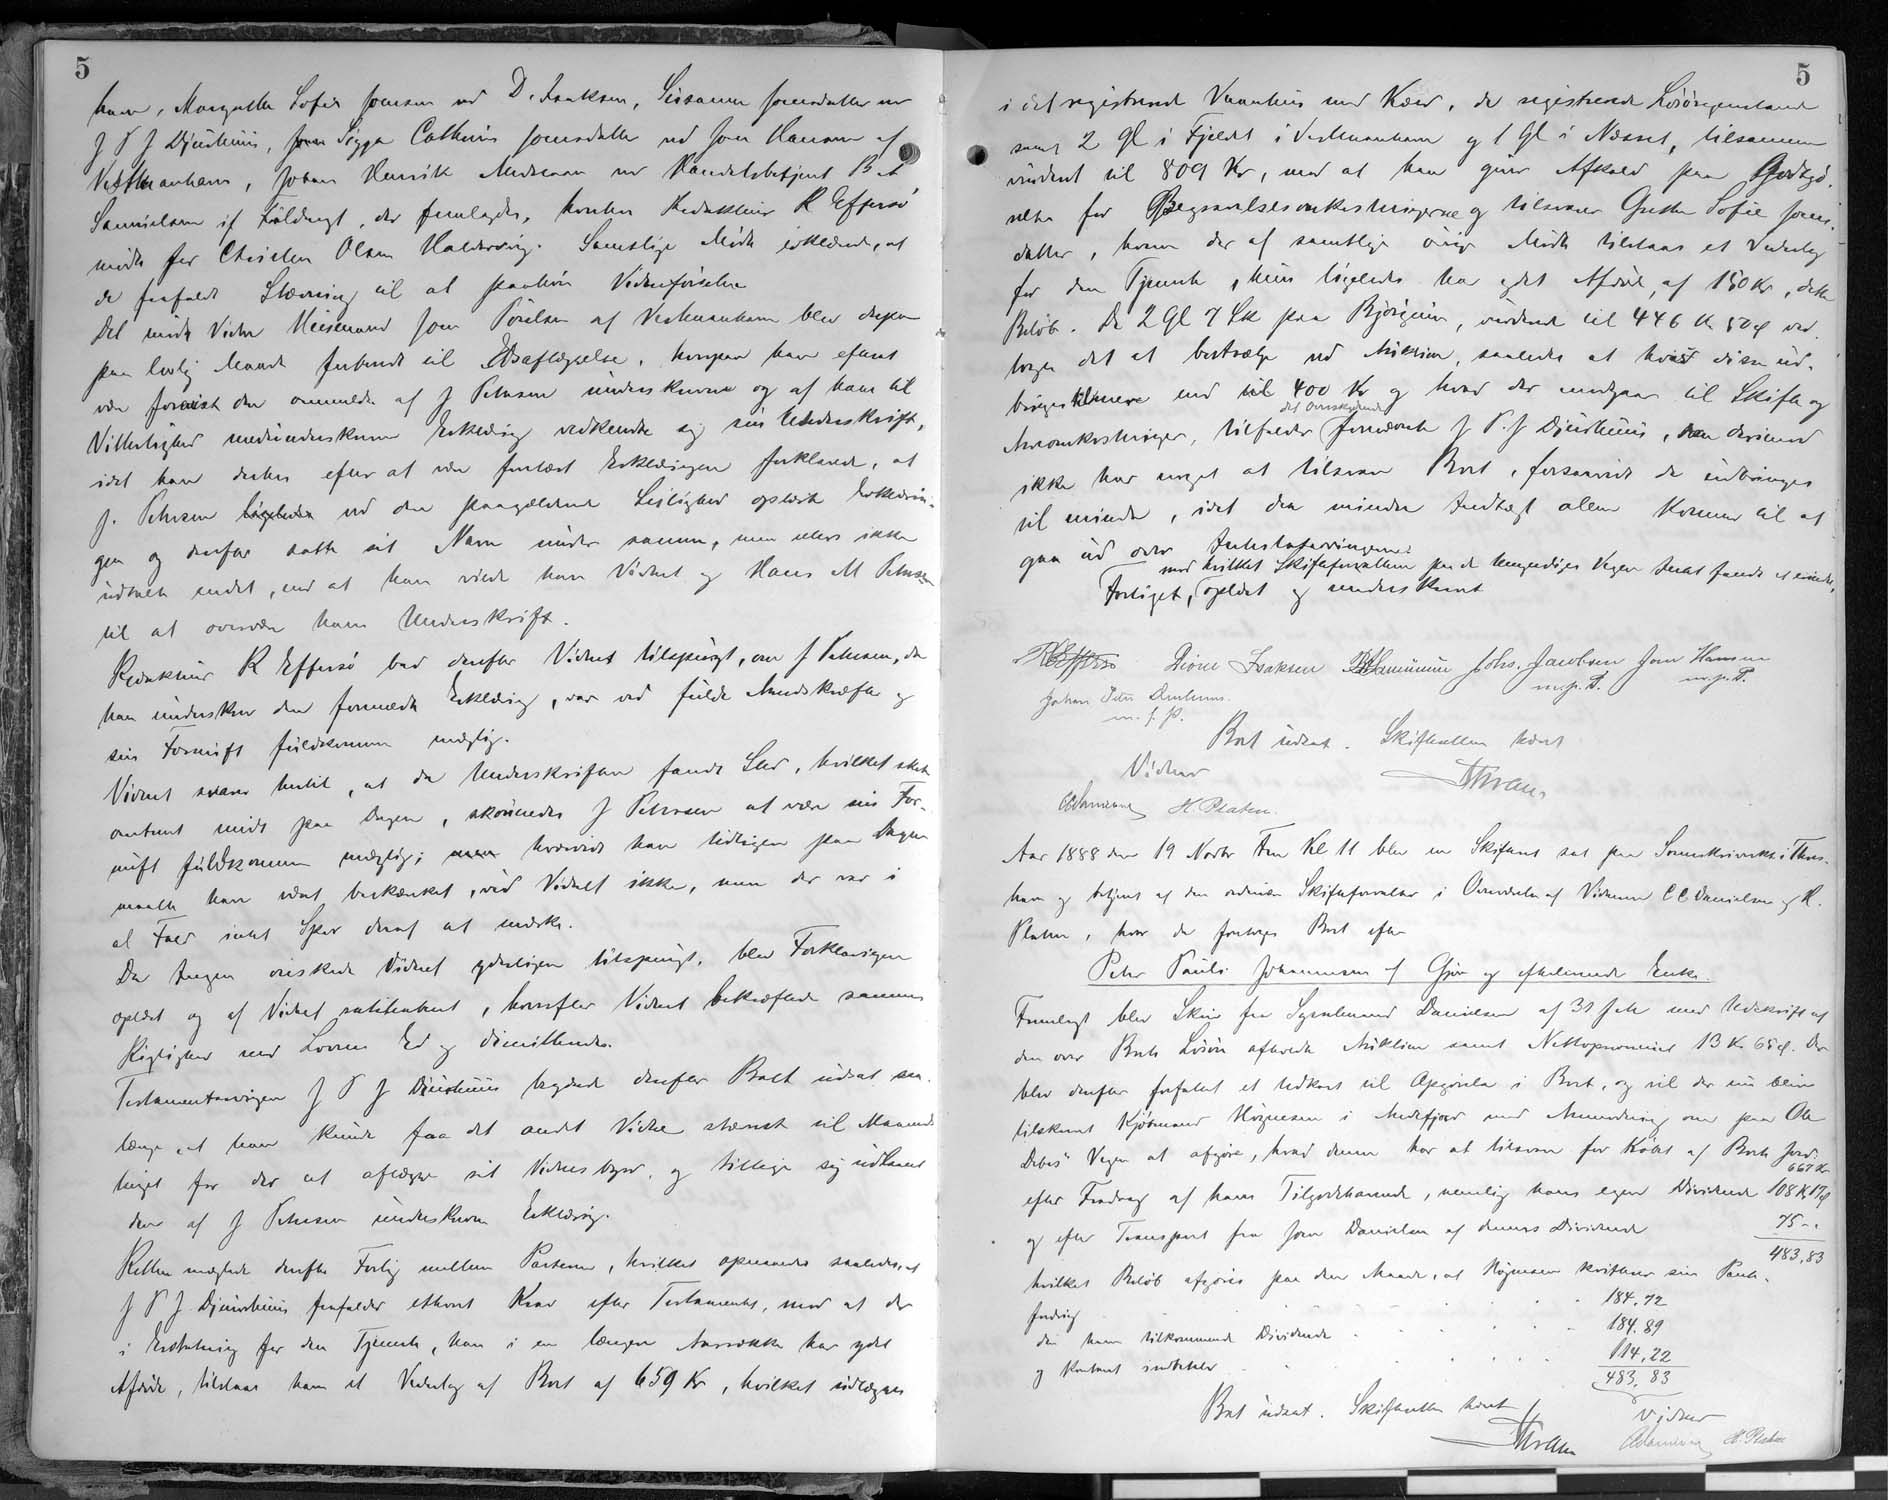 5
ham, Margrethe Sofie Joensen ved D. Isaksen, Susanne Joensdatter ved
J P J Djurhuus, Sigga Cathrine Joensdatter ved Joen Hansen af
Vestmanhavn, Johan Henrik Andreasen ved Handelsbetjent B A
Samuelsen if Fuldmagt, der fremlagdes, hvorhos Redakteur R Effersö
mödte for Christen Olsen Haldersvig. Samtlige Mödte erklærede, at
de frafaldt Stævning til at paahöre Vidneförselen
Det mödte Vidne Huusmand Joen Poulsen af Vestmanhavn blev derpaa
paa lovlig Maade forberedt til Edsaflæggelse, hvorpaa han efterat
være forevist den ommeldte af J Petersen underskrevne og af ham til
Vitterlighed medunderskrevne Erklæring vedkendte sig sin Underskrift,
idet han derhos efter at være forelæst Erklæringen forklarede, at
J. Petersen ved den paagældende Leilighed oplæste Erklærin-
gen og derefter satte sit Navn under samme, men ellers ikke
udtalte andet, end at han vilde have Vidnet og Hans M Petersen
til at overvære hans Underskrift.
Redakteur R Effersö bad derefter Vidnet tilspurgt, om J Petersen, da
han underskrev den fornævnte Erklæring, var ved fulde Aandskræfter og
sin Fornuft fuldkommen mægtig.
Vidnet svarer hertil, at da Underskriften fandt Sted, hvilket skete
omtrent midt paa Dagen, skönnedes J Petersen at være sin For-
nuft fuldkommen mægtig; hvorvidt han tidligere paa Dagen
maatte have været beskænket, ved Vidnet ikke, men der var i
al Fald intet Spor deraf at mærke.
Da Ingen önskede Vidnet yderligere tilspurgt, blev Forklaringen
oplæst og af Vidnet ratihaberet, hvorefter Vidnet bekræftede sammes
Rigtighed med Lovens Ed og dimitteredes.
Testamentarvingen J P J Djurhuus begærede derefter Boet udsat saa
længe, at han kunde faa det andet Vidne stævnet til Maaneds
tinget for der at aflægge sit Vidnesbyrd, og tillige sig udlaant
den af J Petersen underskrevne Erklæring.
Retten mæglede derefter Forlig mellem Parterne, hvilket opnaaedes saaledes, at
J P J Djurhuus frafalder ethvert Krav efter Testamentet, mod at der
i Erstatning for den Tjeneste, han i en længere Aarrække har ydet
Afdöde, tilstaas ham et Vederlag af Boet af 659 Kr, hvilket udlægges
5
i det registrerede Vaanhus med Kær, de registrerede Lösöregenstande
samt 2 Gl i Fjeldet i Vestmanhavn og 1 Gl i Næsset, tilsammen
vurderet til 809 Kr, mod at han giver Afkald paa Godtgö-
relse for Begravelsesomkostningerne og tilsvarer Grethe Sofie Joens-
datter, hvem der af samtlige övrige Mödte tilstaas et Vederlag
for den Tjeneste, hun ligeledes har ydet Afdöde, af 150 Kr, dette
Belöb. De 2 Gl 7 Sk paa Björgum, vurderet til 446 Kr 50 Ø ved-
toges det at bortsælge ved Auktion, saaledes at hvis disse ud-
bringes til mere end 400 Kr og hvad der medgaar til Skifte og
det overskydende
Arveomkostninger, tilfalder fornævnte J P. J Djurhuus, der derimod
ikke har noget at tilsvare Boet, forsaavidt de udbringes
til mindre, idet den mindre Indtægt alene kommer til at
gaa ud over Intestatarvingerne.
med hvilket Skifteforvalteren paa de Umyndiges Vegne Intet fandt at erindre,
Forliget, oplæst og underskrevet
REffersö Dione Isaksen BASamuelsen Johs. Jacobsen Joen Hansen
m.f.P. m.f.P.
Johan Peter Djurhuus.
m. f. P.
Boet udsat. Skifteretten hævet
Vidner
CCDanielsen H. Platen.
Aar 1888 den 19 Novbr Fm Kl 11 blev en Skifteret sat paa Sorenskriverkt. i Thors-
havn og betjent af den ordinære Skifteforvalter i Overværelse af Vidnerne C C Danielsen og H.
Platen, hvor da foretoges Boet efter
Peter Pauli Johannesen af Gjov og efterlevende Enke.
Fremlagt blev Skriv fra Sysselmand Danielsen af 31 Juli med Udskrift af
den over Boets Lösöre afholdte Auktion samt Nettoprovenuet 13 Kr 65 Ø. Der
blev derefter forfattet et Udkast til Opgörelse i Boet, og vil der nu blive
tilskrevet Kjöbmand Höjgaard i Andefjord med Anmodning om paa Ole
Debes' Vegne at afgöre, hvad denne har at tilsvare for Köbet af Boets Jord:
667 Kr
efter Fradrag af hans Tilgodehavende, nemlig hans egen Dividende 108 K 17 Ø
og efter Transport fra Joen Danielsen af dennes Dividende 75 -.
483,83
hvilket Belöb afgöres paa den Maade, at Höjgaard kvitterer sin Pante-
fordring 184,72
den ham tilkommende Dividende 184.89
og kontant indbetaler 114,22
483,83
Boet udsat. Skifteretten hævet
Vidner
CCDanielsen H. Platen